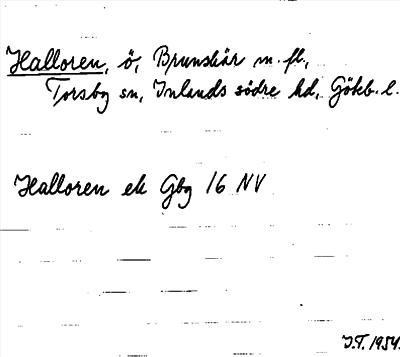 Halloren, ö, Brunskär m. fl.,
Torsby sn, Inlands södre hd, Göteb. l.
Halloren ek Gbg 16 NV
J.T. 1954.